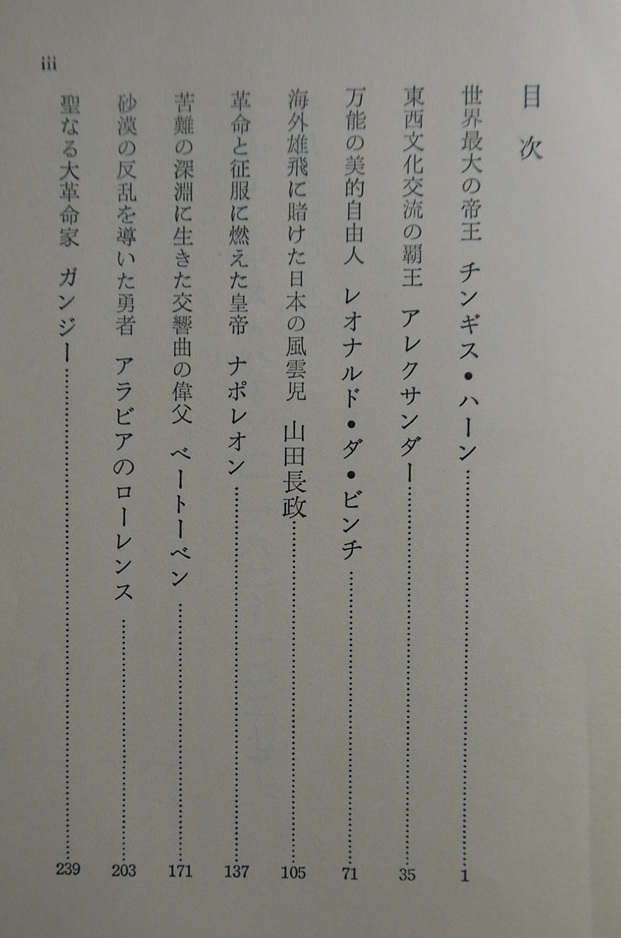 目次
世界最大の帝王 チンギス・ハーン…………1
東西文化交流の覇王 アレクサンダー…………35
万能の美的自由人 レオナルド・ダ・ビンチ…………71
海外雄飛に賭けた日本の風雲児 山田長政…………105
革命と征服に燃えた皇帝 ナポレオン…………137
苦難の深淵に生きた交響曲の偉父 ベートーベン…………171
砂漠の反乱を導いた勇者 アラビアのローレンス…………203
聖なる大革命家 ガンジー…………239
iii